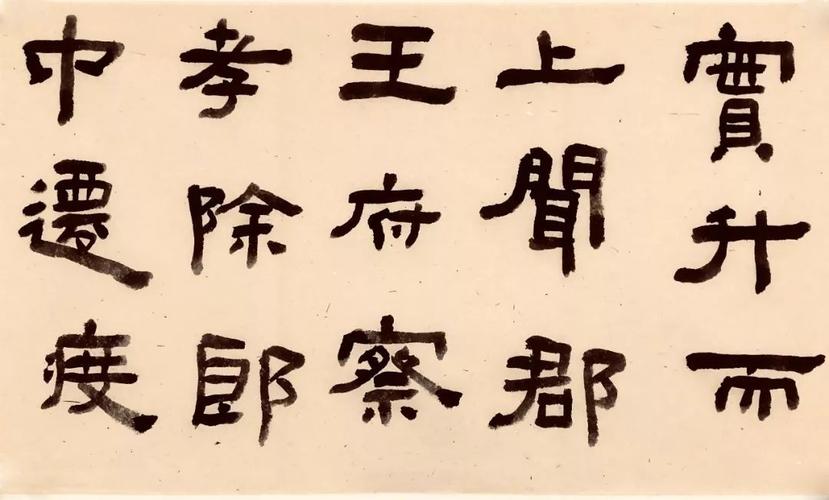 實升而
上聞郡
王府察
孝除郎
中遷度